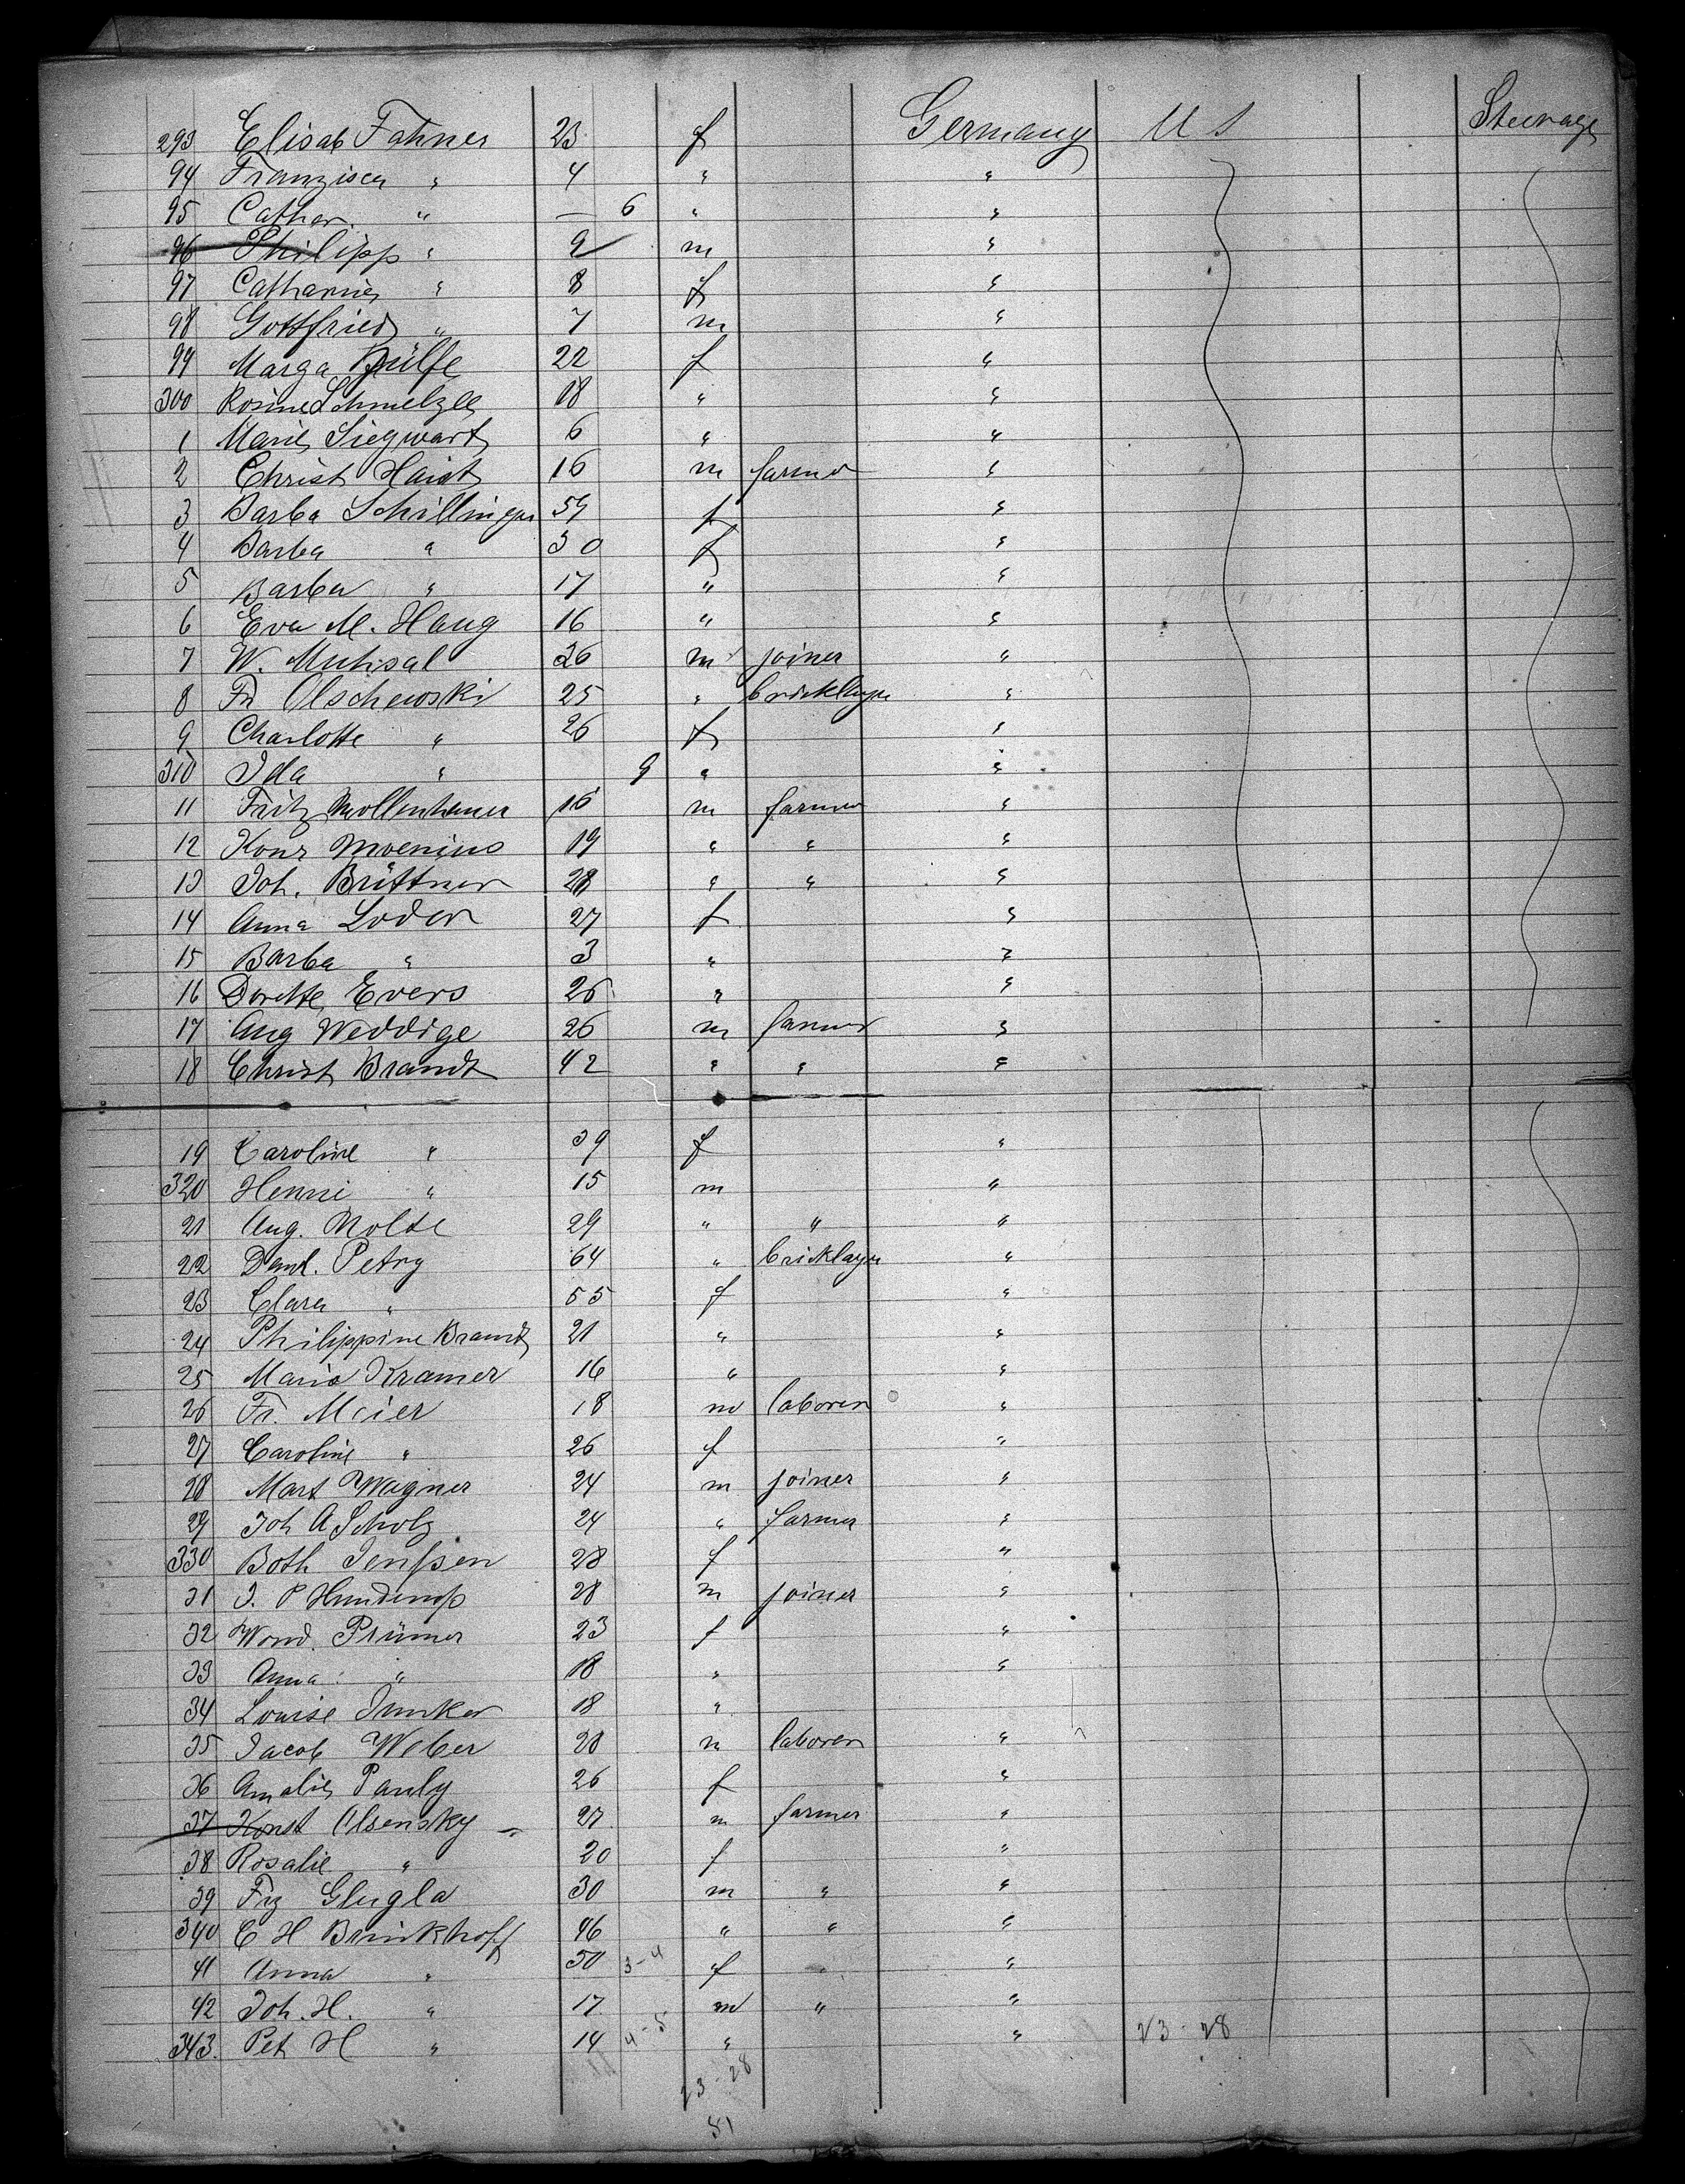 293 Elisab Fahner 23 f Germany U S Steerage
94 Franzisca " 4 " "
95 Cather. " — 6 " "
96 Philipp " 9 m "
97 Catharine " 8 f "
98 Gottfried " 7 m "
99 Marga 22 f "
300 Rosine Schmelzle 18 " "
1 Marie Siegwart 6 " "
2 Christ Haist 16 m farmer "
3 Barba Schillinger 59 f "
4 Barba " 30 f "
5 Barba " 17 " "
6 Eva M. Haug 16 " "
7 W. Muhsal 26 m joiner "
8 Fr Olschewski 25 " bricklayer "
9 Charlotte " 26 f "
310 Ida " 9 " "
11 Fritz Mollenhauer 16 m farmer "
12 Konr Moenius 19 " " "
13 Joh. Brittner 28 " " "
14 Anna Loder 27 f "
15 Barba " 3 " "
16 Dorette Evers 26 " "
17 Aug Weddige 26 m farmer "
18 Christ Brandt 42 " " "
19 Caroline " 39 f "
320 Henni " 15 m "
21 Aug. Nolte 29 " " "
22 Danl. Petry 64 " bricklayer "
23 Clara " 55 f "
24 Philippine Brandt 21 " "
25 Maria Kramer 16 " "
26 Fr. Meier 18 m laborer "
27 Caroline " 26 f "
28 Mart Wagner 24 m joiner "
29 Joh A Scholz 24 " farmer "
330 Both Jenssen 28 f "
31 J. P 28 m joiner "
32 Wend. Prümer 23 f "
33 Anna " 18 " "
34 Louise Junker 18 " "
35 Jacob Weber 28 m laborer "
36 Amalie Pauly 26 f "
37 Konst Olsensky 27 m farmer "
38 Rosalie " 20 f "
39 Frz Glugla 30 m " "
340 C H Brinkhoff 46 " " "
41 Anna " 50 3-4 f "
42 Joh. H. " 17 m " "
343. Pet H " 14 4-5 " " 23-28
23-28
51